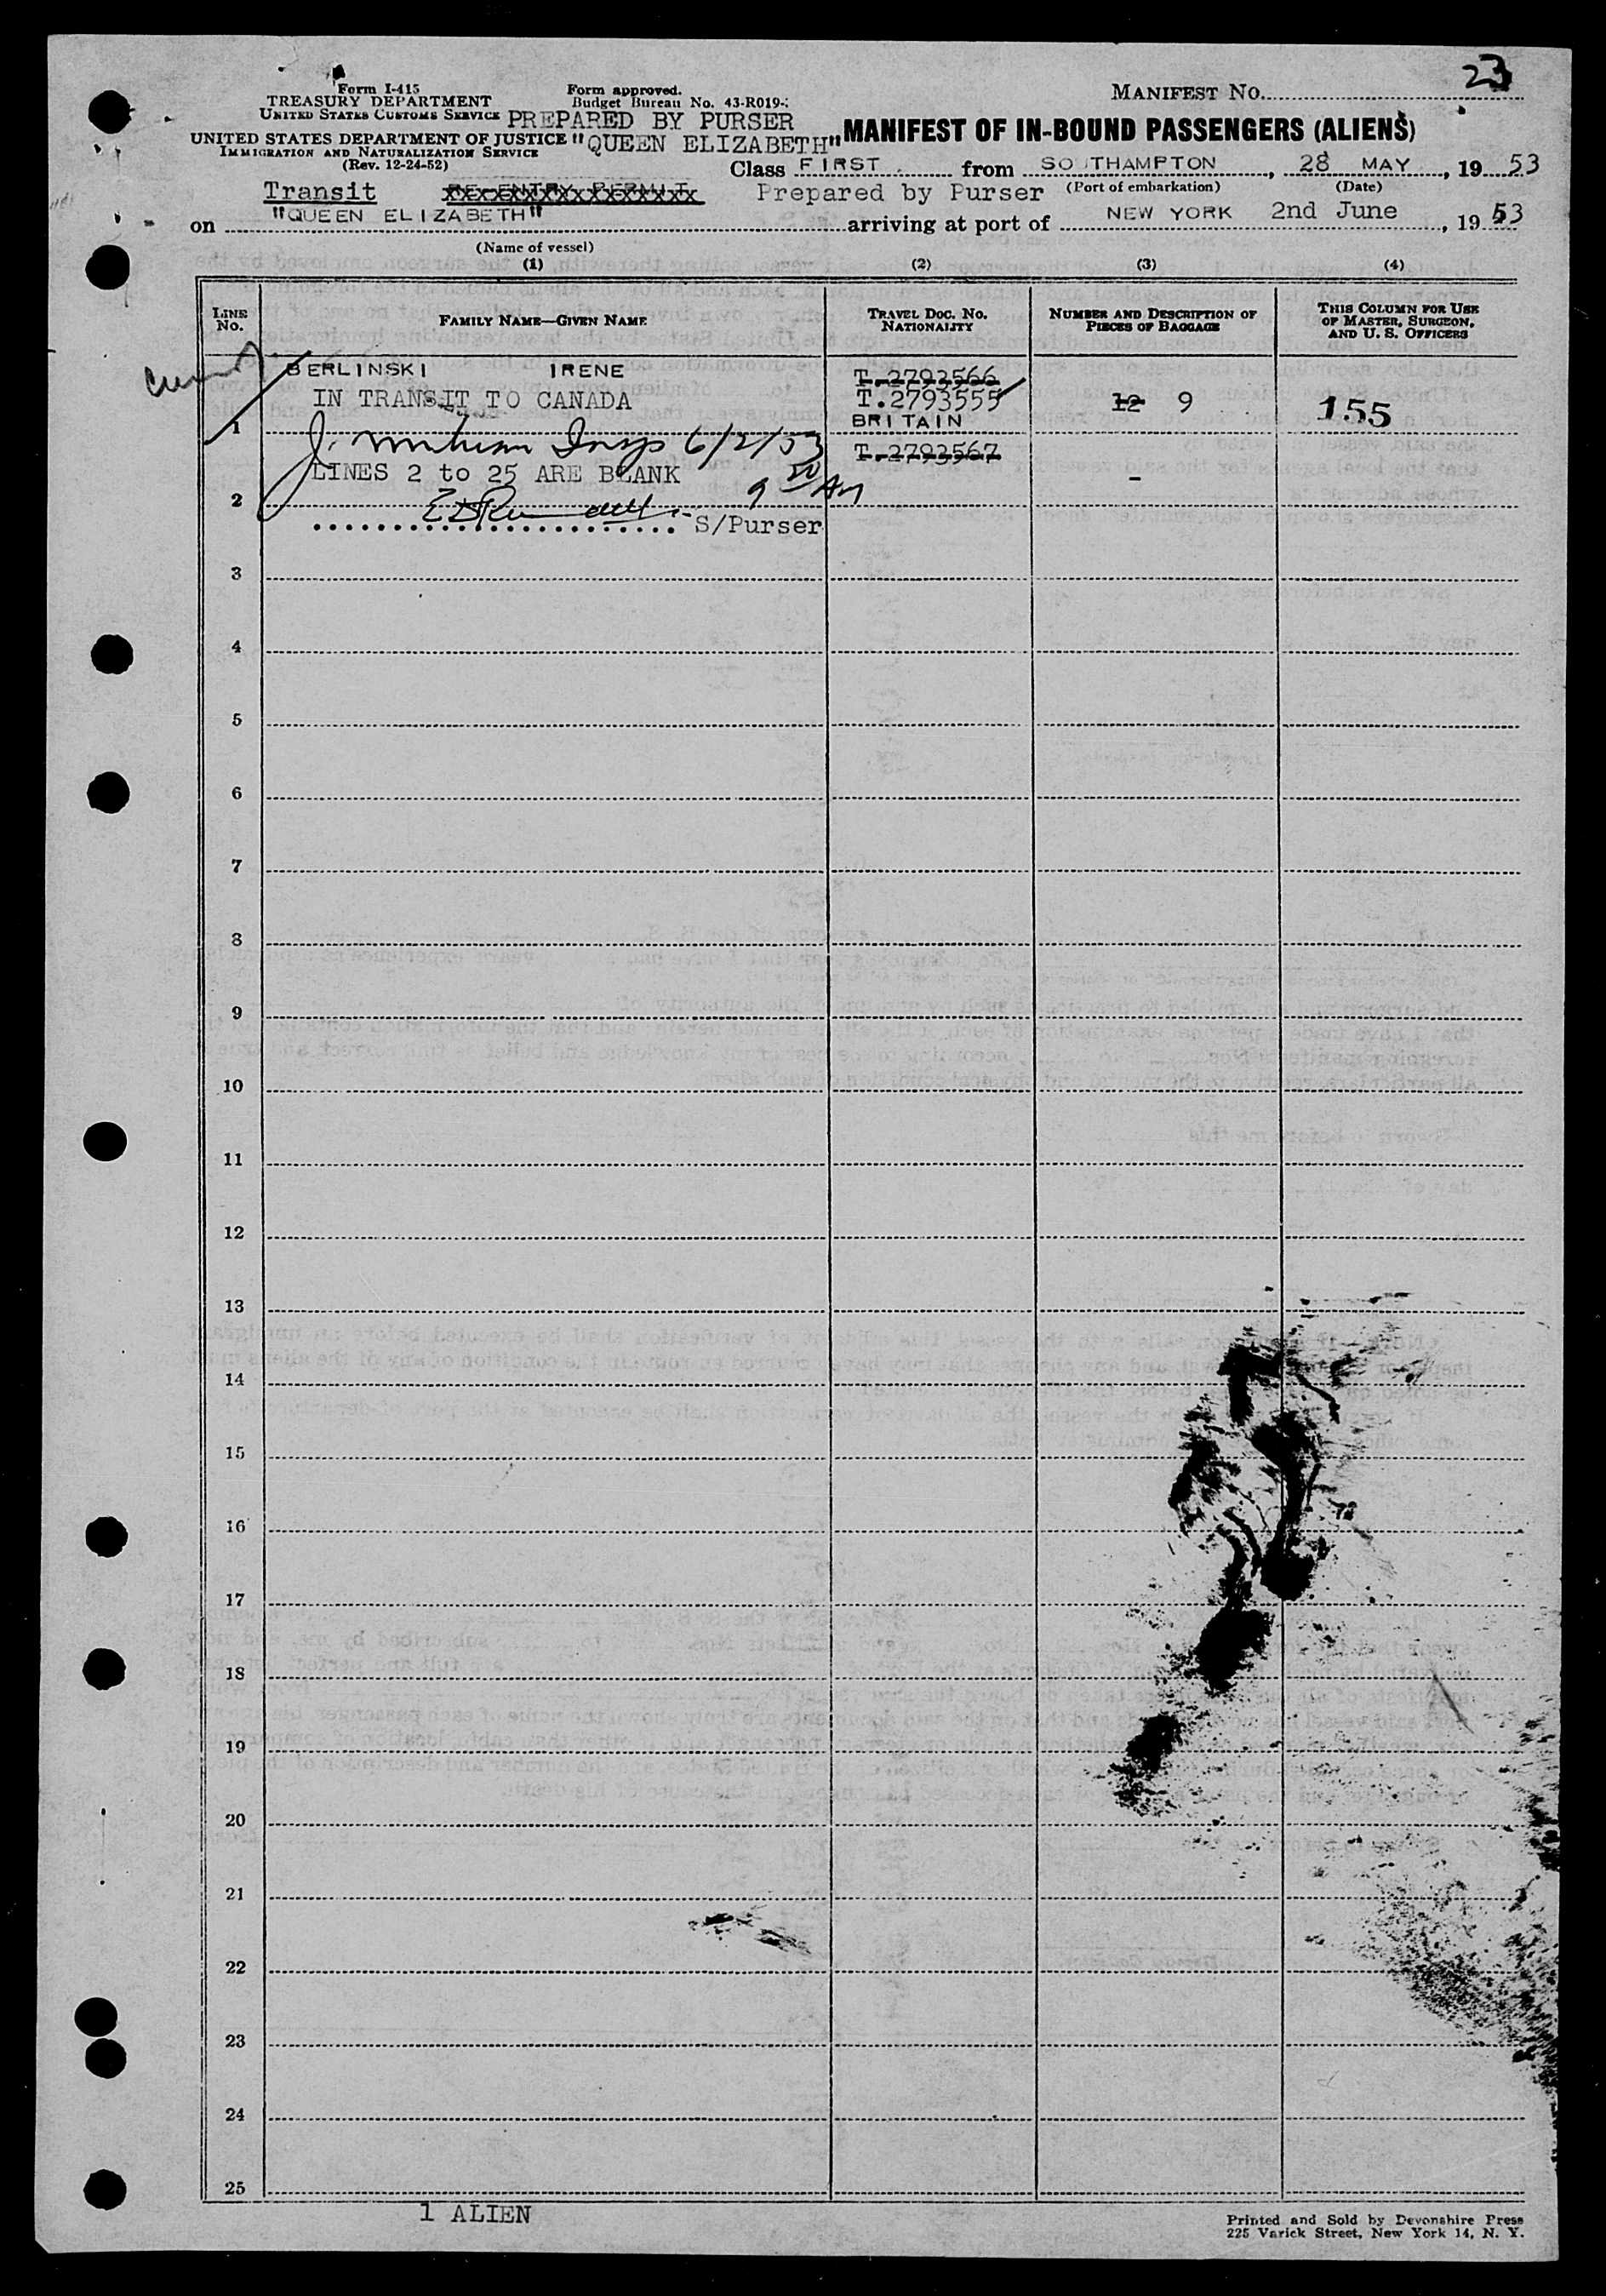 23
Form I-415
TREASURY DEPARTMENT
UNITED STATES CUSTOMS SERVICE
UNITED STATES DEPARTMENT OF JUSTICE
IMMIGRATION AND NATURALIZATION SERVICE
(Rev. 12-24-52)
Form approved.
Budget Bureau No. 43-R019-
PREPARED BY PURSER
"QUEEN ELIZABETH"
MANIFEST NO.
MANIFEST OF IN-BOUND PASSENGERS (ALIENS)
Class FIRST from SOUTHAMPTON, 28 MAY, 19 53
(Port of embarkation) (Date)
Transit RE-ENTRY PERMIT Prepared by Purser
on "QUEEN ELIZABETH" arriving at port of NEW YORK 2nd June, 19 53
(Name of vessel)
(1) (2) (3) (4)
LINE No. FAMILY NAME—GIVEN NAME TRAVEL DOC. NO. NATIONALITY NUMBER AND DESCRIPTION OF PIECES OF BAGGAGE THIS COLUMN FOR USE OF MASTER, SURGEON, AND U. S. OFFICERS
BERLINSKI IRENE T.2793566
IN TRANSIT TO CANADA T.2793555 12 9 155
1 BRITAIN
J. Insp 6/2/53 T.2793567
LINES 2 to 25 ARE BLANK -
2 9 30 AM
S/Purser
3
4
5
6
7
8
9
10
11
12
13
14
15
16
17
18
19
20
21
22
23
24
25
1 ALIEN
Printed and Sold by Devonshire Press
225 Varick Street, New York 14, N. Y.